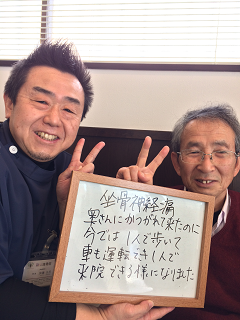 坐骨神経痛
奥さんにかつがれて来たのに
今では1人で歩いて
車も運転でき1人で
来院できる様になりました